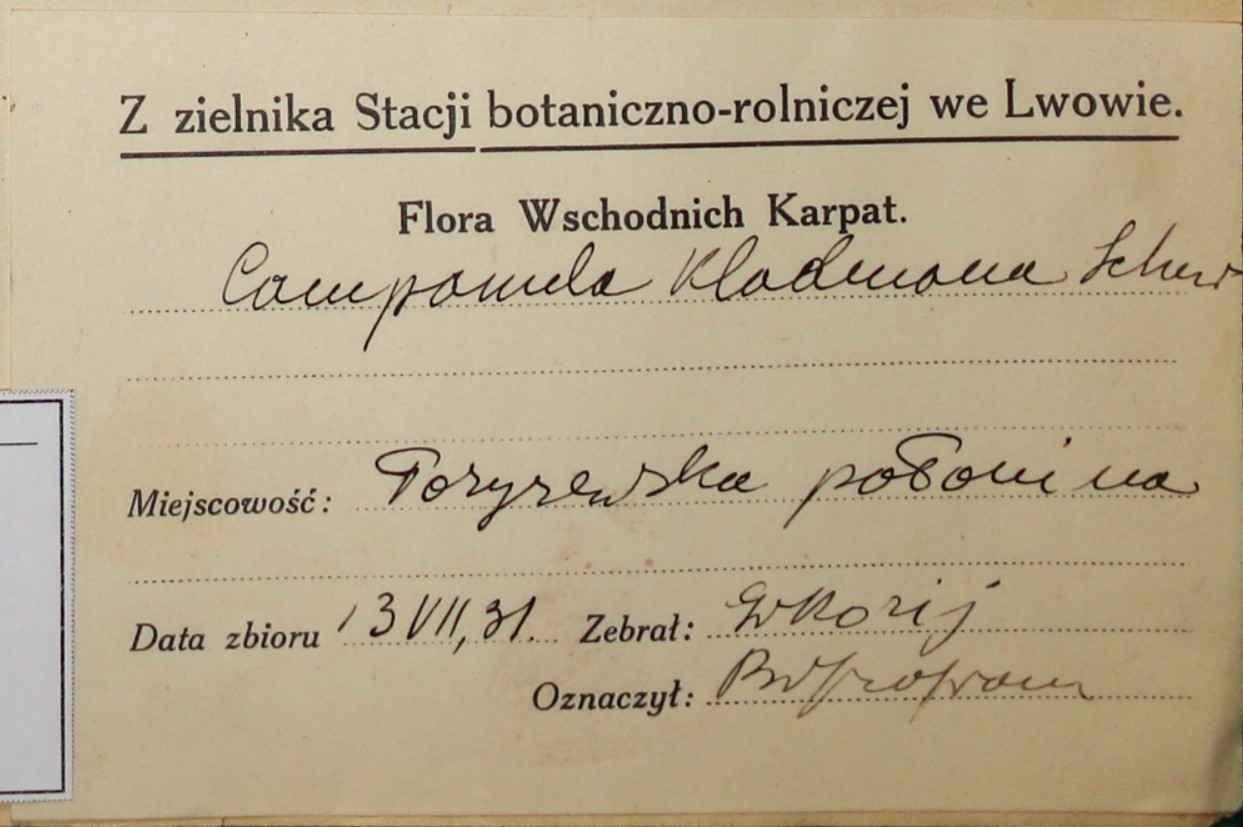 Z zielnika Stacji botaniczno-rolniczej we Lwowie.
Flora Wschodnich Karpat.
Campanula Kladniana Schur
Miejscowość: Pożyżewska połonina
Data zbioru 13 VII, 31. Zebrał: G Kozij
Oznaczył: